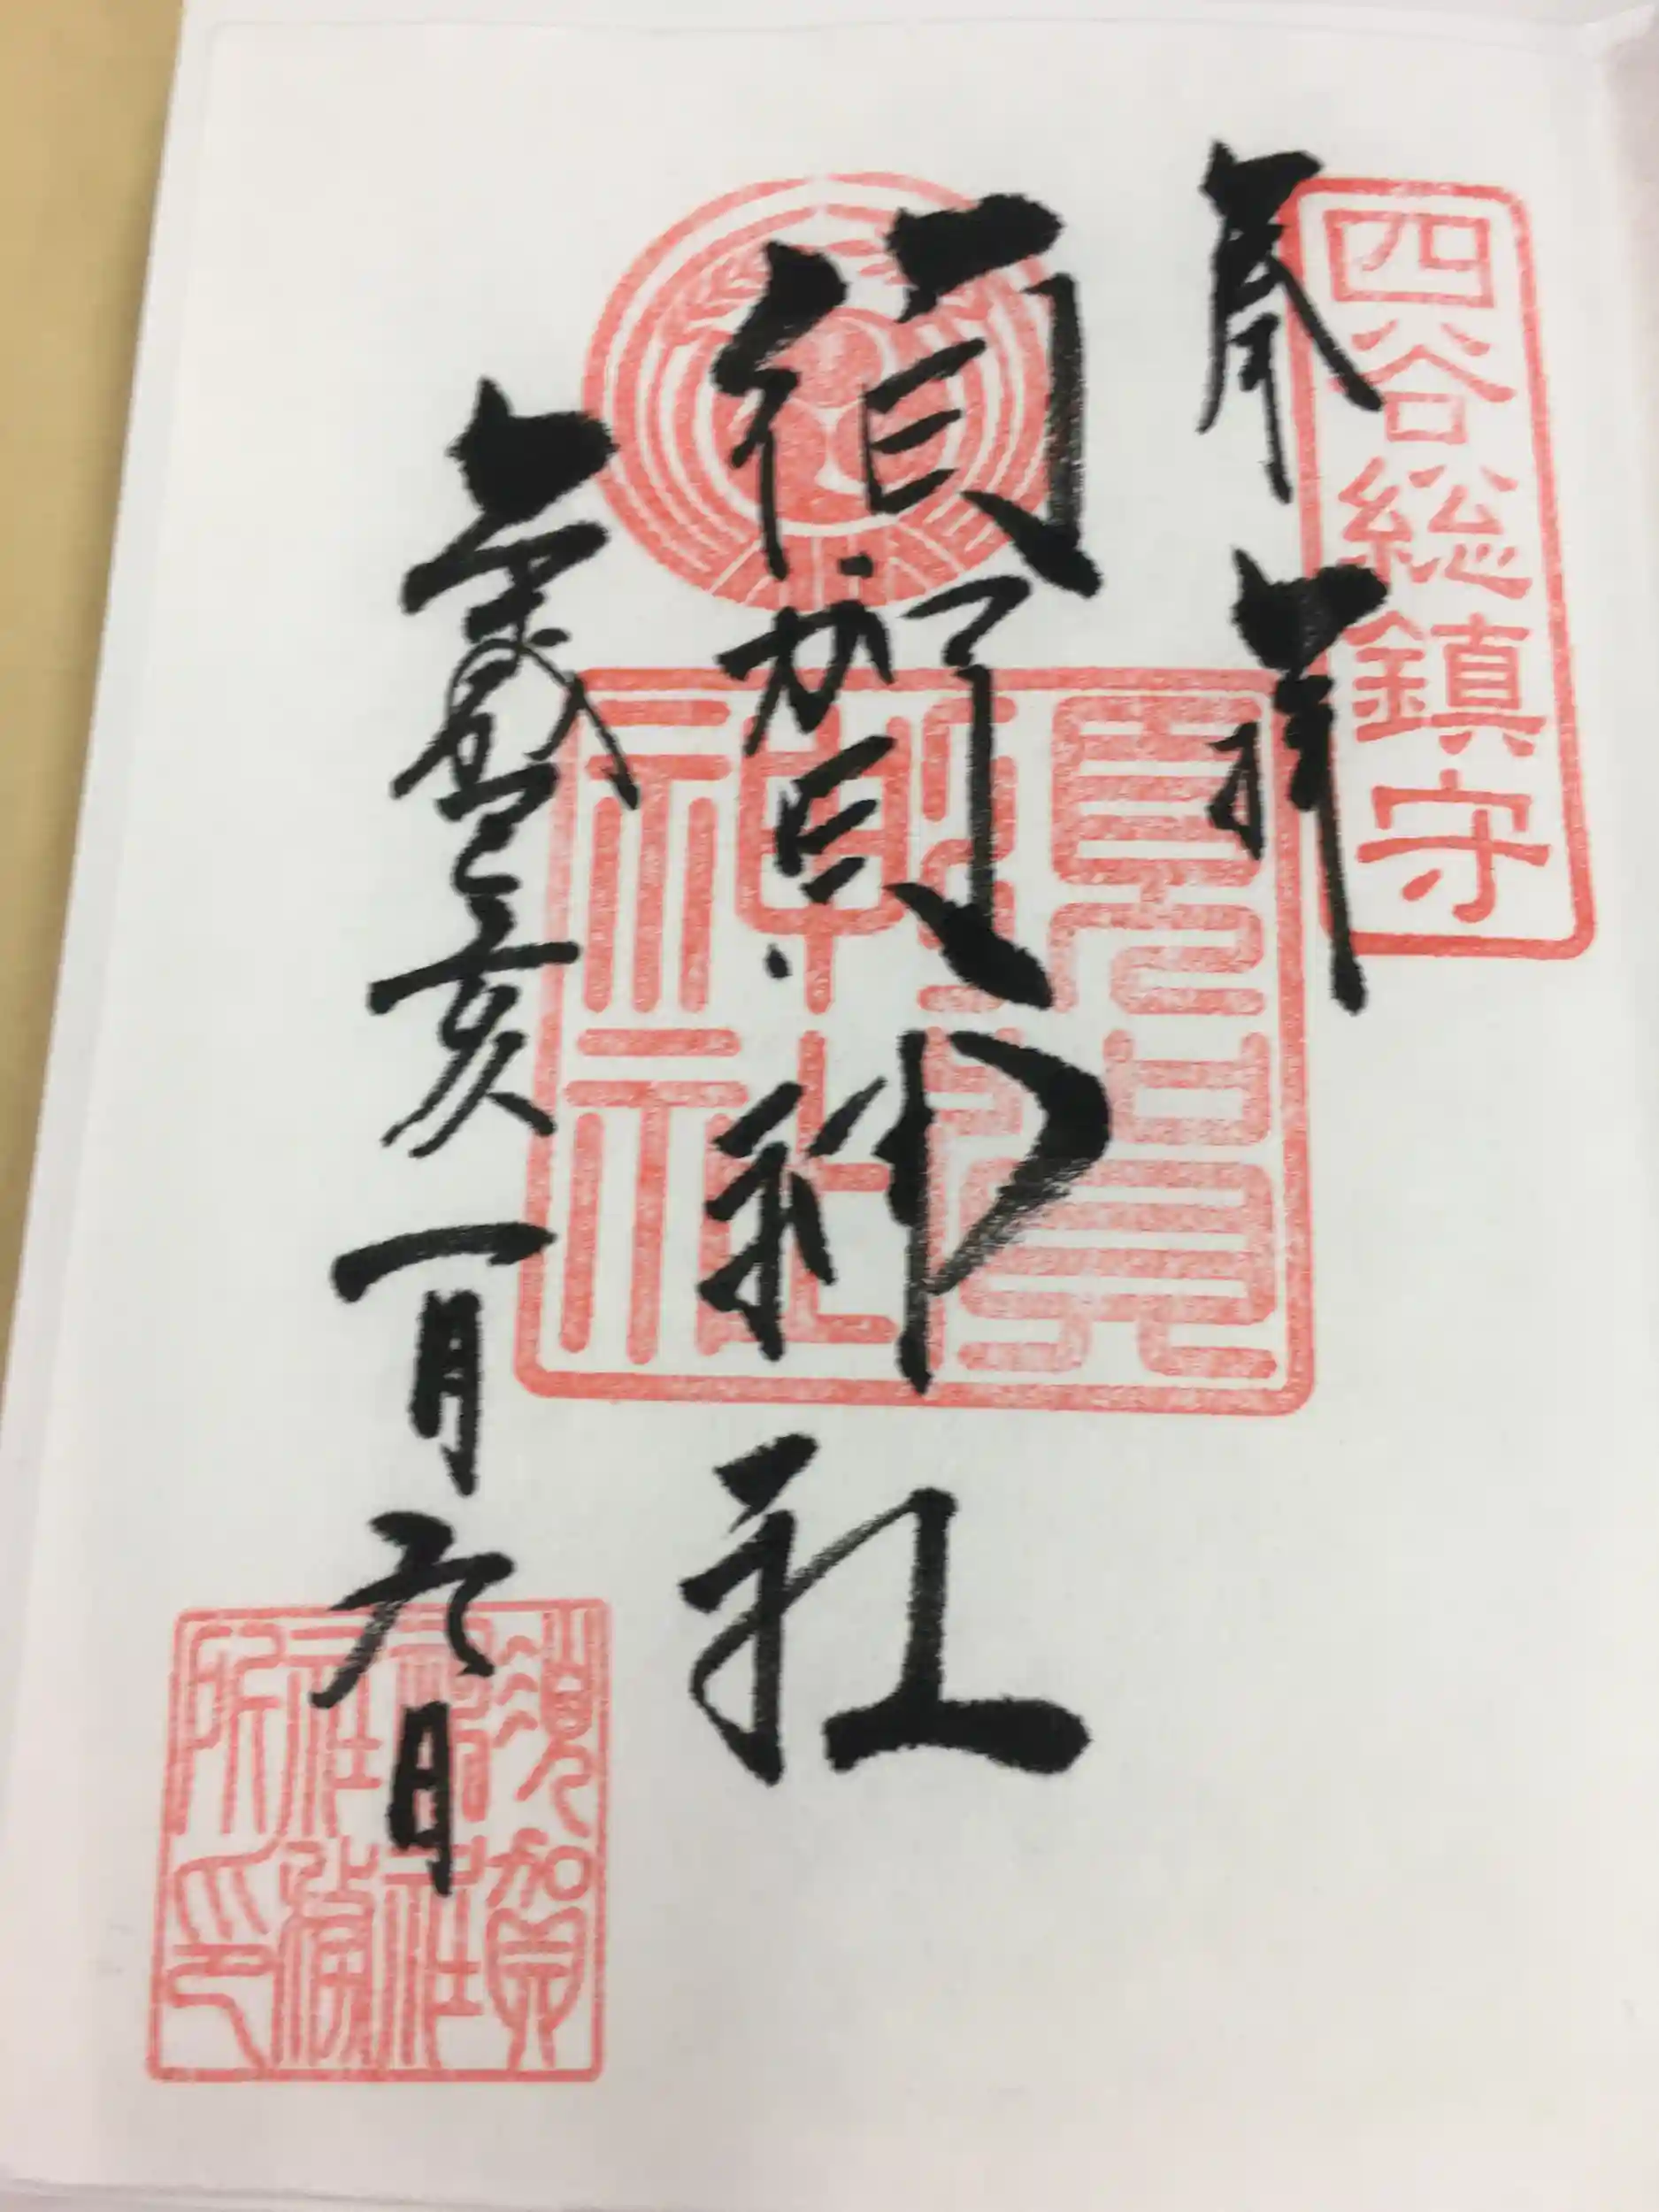 四谷総鎮守
奉拝
須賀神社
須賀神社
歳己亥一月六日
須賀
神社
社務
所印